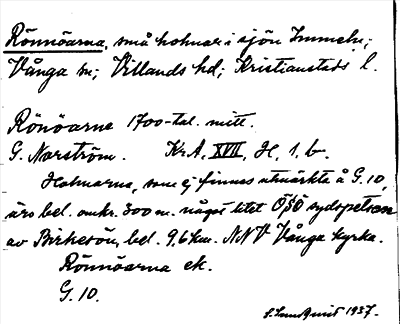 Rönnöarna, små holmar i sjön Immeln;
Vånga sn; Villands hd; Kristianstads l.
Rönöarne 1700-tal. mitt.
G. Norström. Kr.A, XVII, H, 1, b.
Holmarna, som ej finnas utmärkta å G.10,
äro bel. omkr. 300 m. något litet ÖSÖ sydspetsen
av Birkeön, bel. 9,6 km. NNV Vånga kyrka.
Rönnöarna ek.
G. 10.
S. Lundquist 1937.